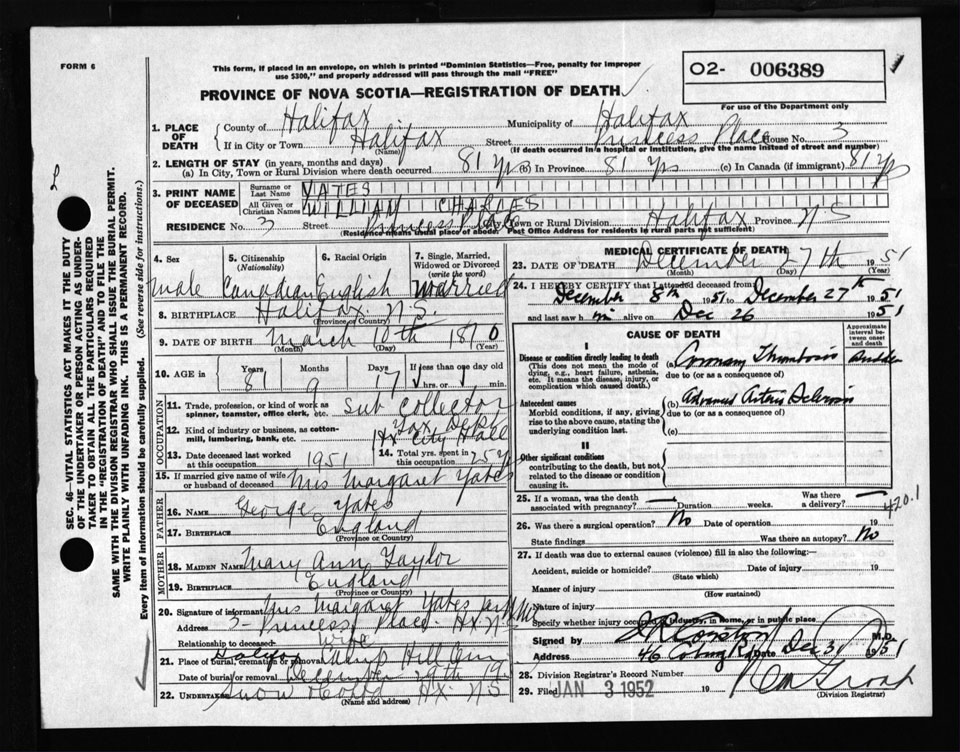 FORM 6
This form, if placed in an envelope, on which is printed "Dominion Statistics—Free, penalty for improper
use $300," and properly addressed will pass through the mail "FREE"
O2- 006389
For use of the Department only
PROVINCE OF NOVA SCOTIA—REGISTRATION OF DEATH
1. PLACE OF DEATH County of Halifax Municipality of Halifax
If in City or Town Halifax (Name) Street Princess Place House No. 3
(If death occurred in a hospital or institution, give the name instead of street and number)
2. LENGTH OF STAY (in years, months and days)
(a) In City, Town or Rural Division where death occurred 81 yrs (b) In Province 81 yrs (c) In Canada (if immigrant) 81 yrs
3. PRINT NAME OF DECEASED Surname or Last Name YATES
All Given or Christian Names WILLIAM CHARLES
RESIDENCE No. 3 Street Princess Place City, Town or Rural Division Halifax Province N S
(Residence means usual place of abode. Post Office Address for residents in rural parts not sufficient)
4. Sex male
5. Citizenship (Nationality) Canadian
6. Racial Origin English
7. Single, Married, Widowed or Divorced (write the word) married
8. BIRTHPLACE Halifax N.S.
(Province or Country)
9. DATE OF BIRTH March 10th 1870
(Month) (Day) (Year)
10. AGE in Years 81 Months 9 Days 17 If less than one day old hrs. or min.
OCCUPATION
11. Trade, profession, or kind of work as spinner, teamster, office clerk, etc. Sub Collector
12. Kind of industry or business, as cotton-mill, lumbering, bank, etc. Tax Dept Hx City Hall
13. Date deceased last worked at this occupation 1951
14. Total yrs. spent in this occupation 25 y
15. If married give name of wife or husband of deceased Mrs Margaret Yates
FATHER
16. NAME George Yates
17. BIRTHPLACE England
(Province or Country)
MOTHER
18. MAIDEN NAME Mary Ann Taylor
19. BIRTHPLACE England
(Province or Country)
20. Signature of informant Mrs Margaret Yates
Address 3- Princess Place- Hx N S
Relationship to deceased Wife
21. Place of burial, cremation or removal Halifax Camp Hill Cem
Date of burial or removal December 29th 19
22. Undertaker Snow Co Ltd Hx. N S
(Name and address)
MEDICAL CERTIFICATE OF DEATH
23. DATE OF DEATH December 27th 1951
(Month) (Day) (Year)
24. I HEREBY CERTIFY that I attended deceased from
December 8th 1951 to December 27th 1951
and last saw him alive on Dec 26 1951
CAUSE OF DEATH
Approximate interval between onset and death
I
Disease or condition directly leading to death
(This does not mean the mode of dying, e.g., heart failure, asthenia, etc. It means the disease, injury, or complication which caused death.)
(a) Coronary Thrombosis Sudden
due to (or as a consequence of)
Antecedent causes
Morbid conditions, if any, giving rise to the above cause, stating the underlying condition last.
(b) Advanced Arterio Sclerosis
due to (or as a consequence of)
(c)
II
Other significant conditions
contributing to the death, but not related to the disease or condition causing it.
25. If a woman, was the death associated with pregnancy? — Duration weeks. Was there a delivery? —
420.1
26. Was there a surgical operation? No Date of operation 19
State findings Was there an autopsy? No
27. If death was due to external causes (violence) fill in also the following:—
Accident, suicide or homicide? Date of injury 19
(State which)
Manner of injury
(How sustained)
Nature of injury
Specify whether injury occurred in industry, in home, or in public place
Signed by M.D.
Address 46 Coburg Rd Date Dec 31 1951
28. Division Registrar's Record Number
29. Filed JAN 3 1952 19
(Division Registrar)
SEC. 46—VITAL STATISTICS ACT MAKES IT THE DUTY
OF THE UNDERTAKER OR PERSON ACTING AS UNDER-
TAKER TO OBTAIN ALL THE PARTICULARS REQUIRED
IN THE "REGISTRATION OF DEATH" AND TO FILE THE
SAME WITH THE DIVISION REGISTRAR WHO SHALL ISSUE THE BURIAL PERMIT.
WRITE PLAINLY WITH UNFADING INK. THIS IS A PERMANENT RECORD.
Every item of information should be carefully supplied. (See reverse side for instructions.)